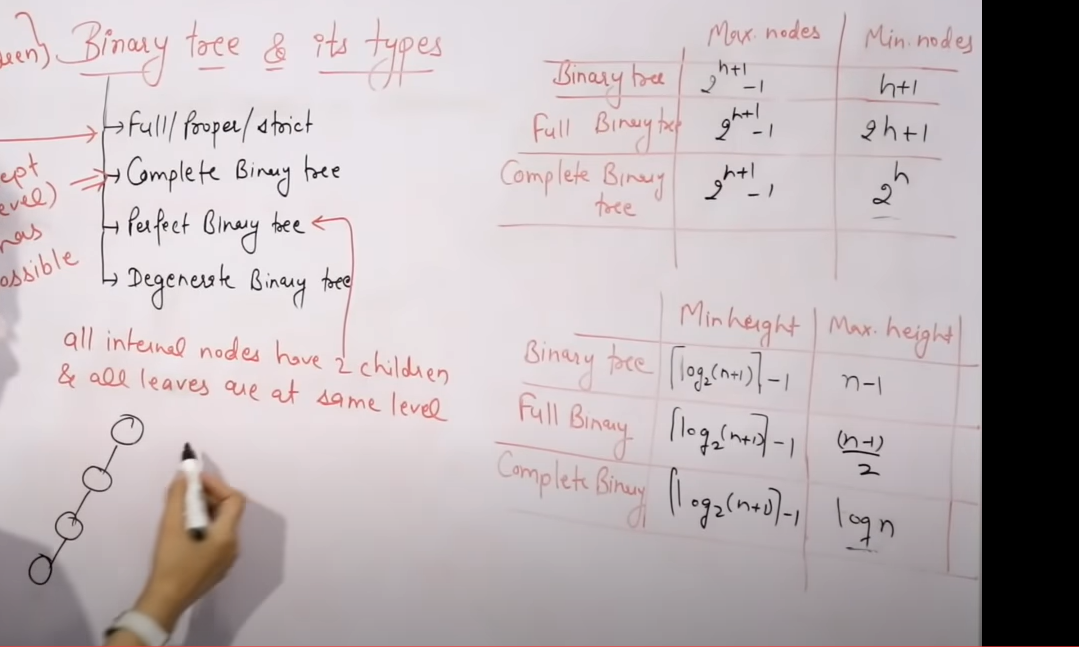 een) Binary tree & its types
Full/Proper/strict
ept
Complete Binary tree
evel)
has
Perfect Binary tree
ossible
Degenerate Binary tree
all internal nodes have 2 children
& all leaves are at same level
Max. nodes Min. nodes
Binary tree 2^{h+1} -1 h+1
Full Binary tree 2^{h+1} -1 2h+1
Complete Binary 2^{h+1} -1 2^h
tree
Min height Max. height
Binary tree ⌈log₂(n+1)⌉-1 n-1
Full Binary ⌈log₂(n+1)⌉-1 (n-1)/2
Complete Binary ⌈log₂(n+1)⌉-1 log n